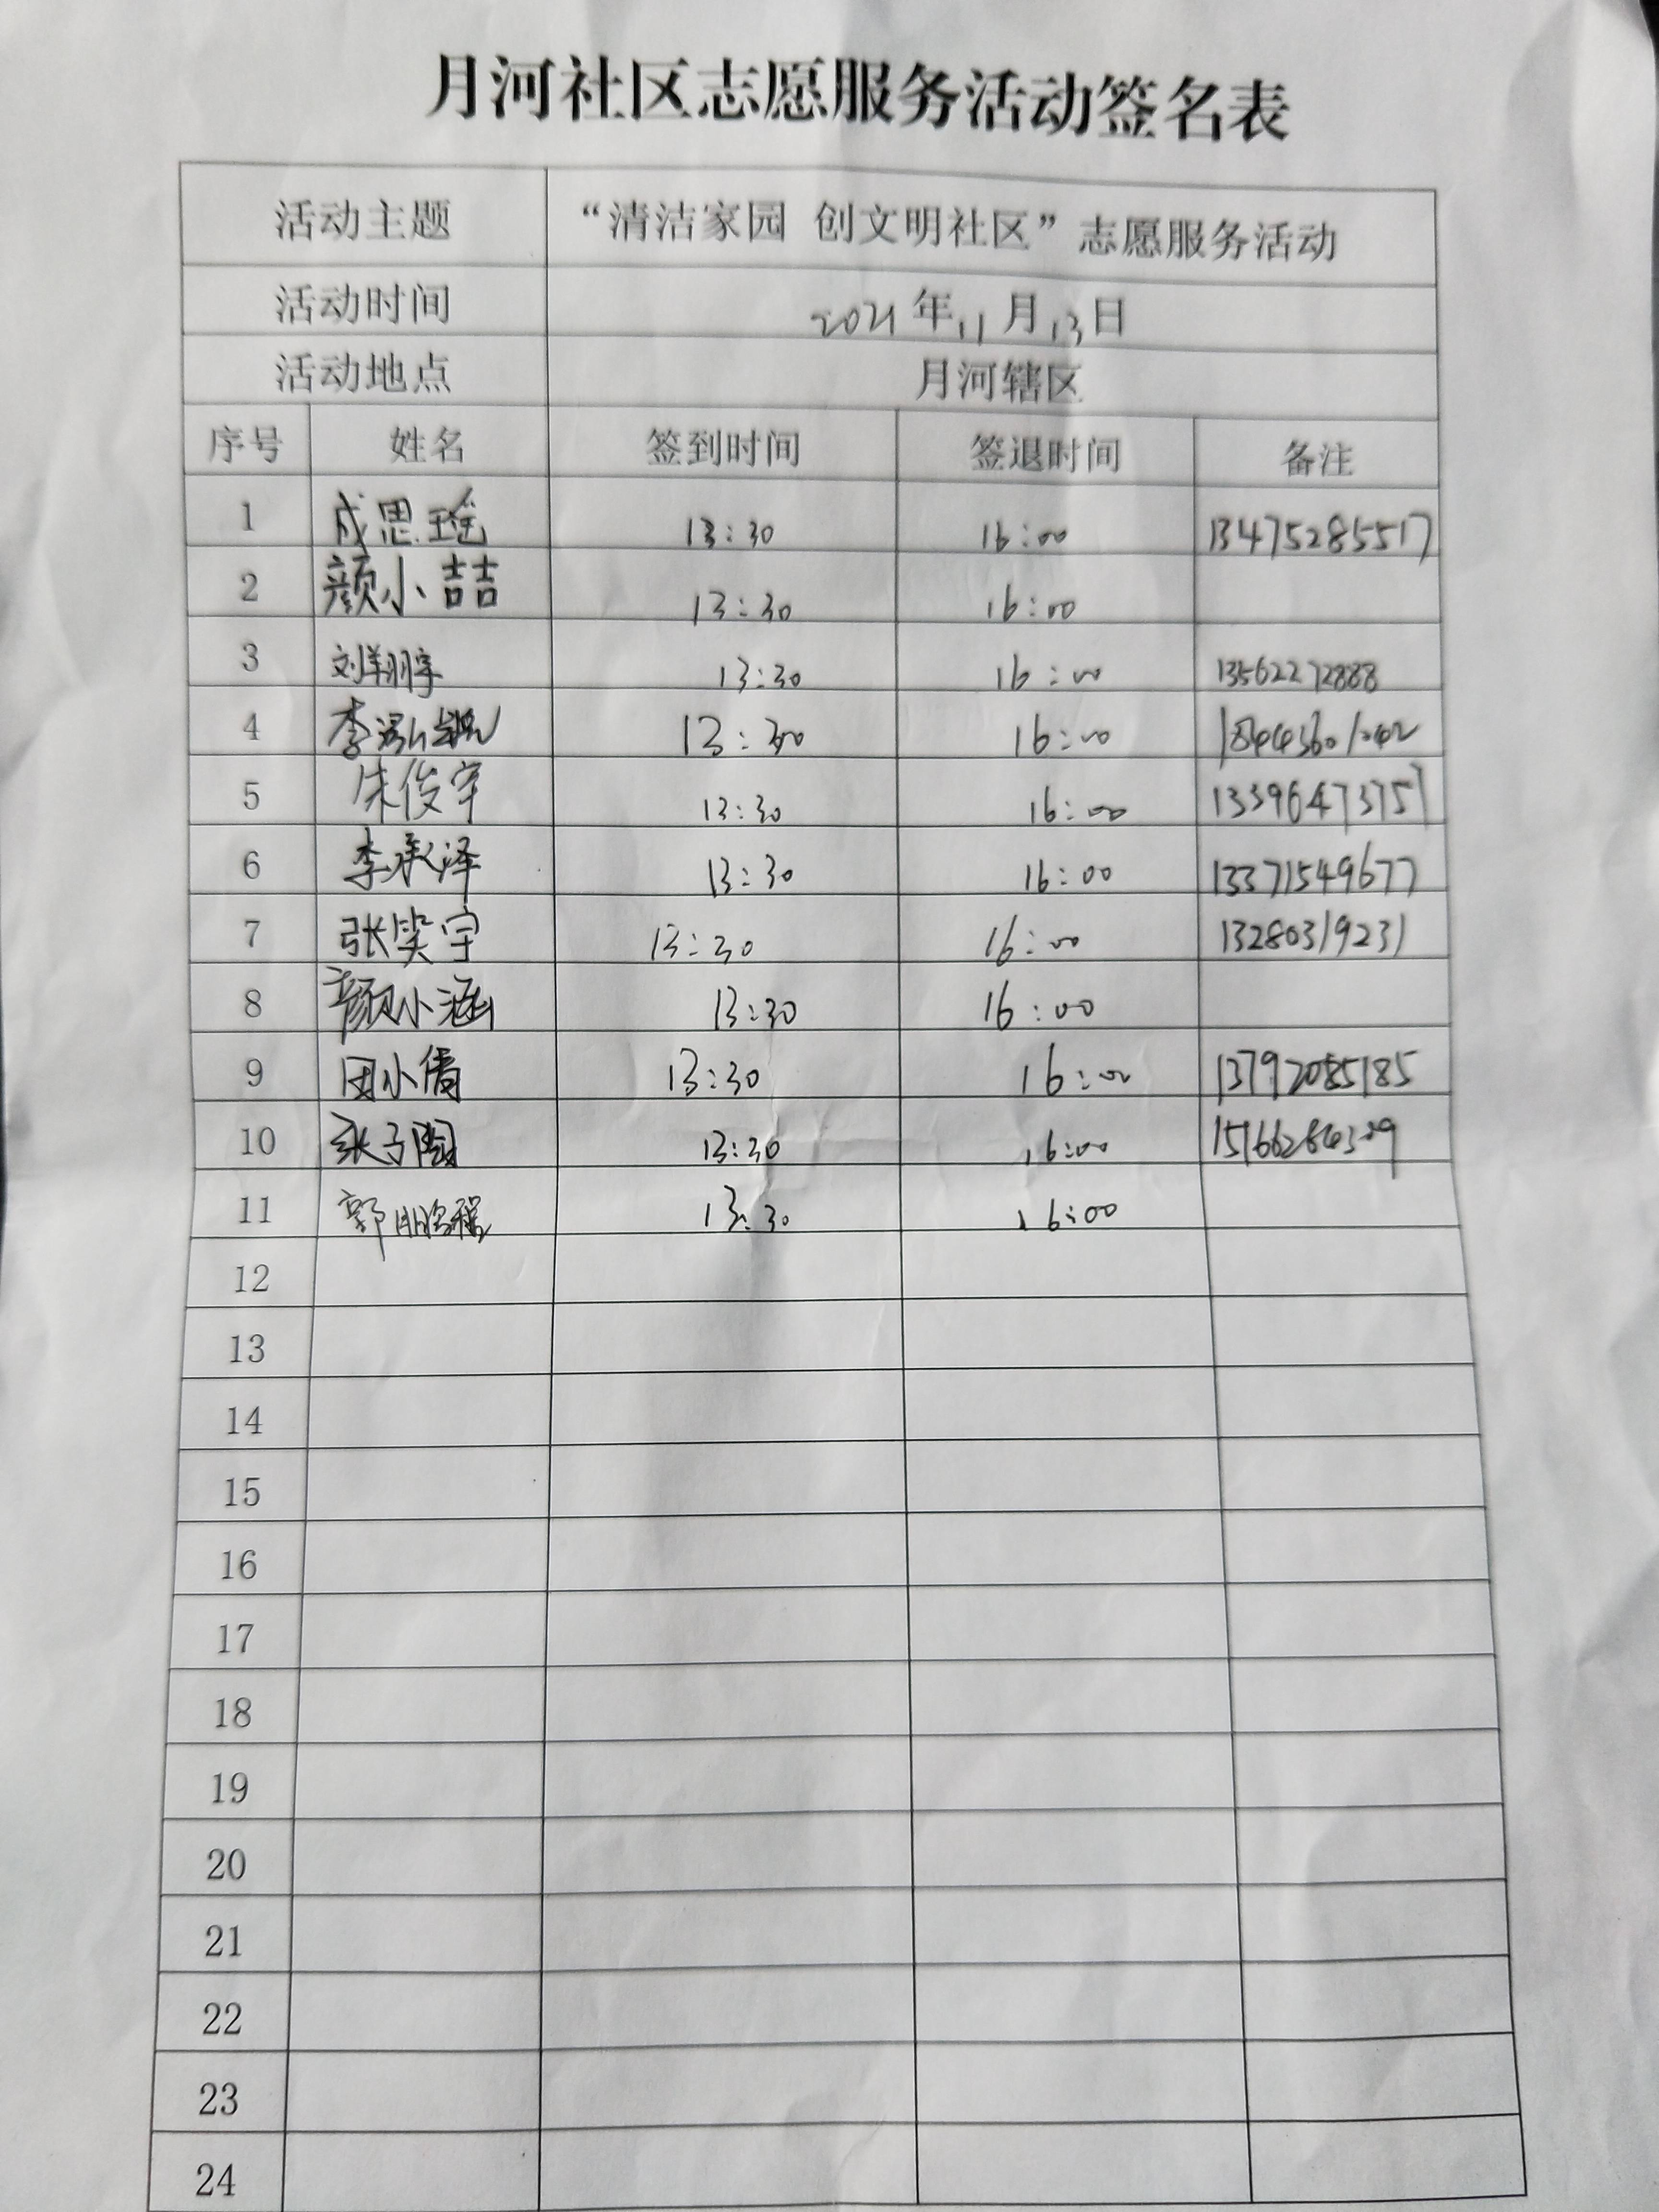 月河社区志愿服务活动签名表
活动主题 “清洁家园 创文明社区”志愿服务活动
活动时间 2021年11月13日
活动地点 月河辖区
序号 姓名 签到时间 签退时间 备注
1 成思瑶 13:30 16:00 13475285517
2 颜小喆 13:30 16:00
3 刘翔宇 13:30 16:00 13562272888
4 李泓 13:30 16:00
5 朱俊宇 13:30 16:00 13396473757
6 李承泽 13:30 16:00 13371549677
7 张笑宇 13:30 16:00 13280319231
8 颜小涵 13:30 16:00
9 田小倩 13:30 16:00 13792085185
10 张子陶 13:30 16:00
11 郭鹏程 13:30 16:00
12
13
14
15
16
17
18
19
20
21
22
23
24